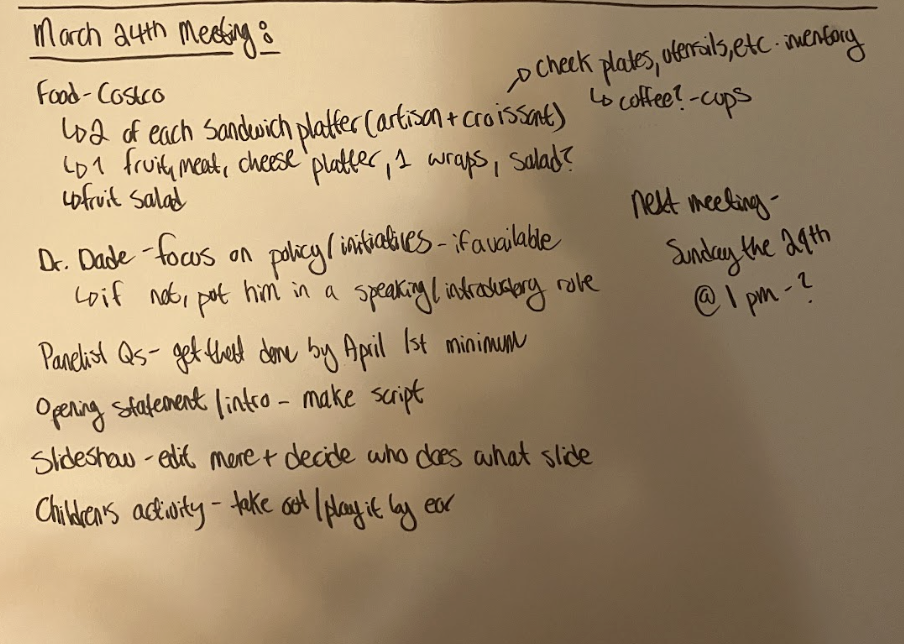 March 24th Meeting:
Food - Costco
↳ 2 of each sandwich platter (artisan + croissant)
→ check plates, utensils, etc. inventory
↳ coffee? - cups
↳ 1 fruit, meat, cheese platter, 1 wraps, salad?
↳ fruit salad
Dr. Dade - focus on policy/initiatives - if available
↳ if not, put him in a speaking/introductory role
Panelist Qs - get them done by April 1st minimum
Opening statement/intro - make script
Slideshow - edit more + decide who does what slide
Children's activity - take out/play it by ear
next meeting -
Sunday the 29th
@ 1 pm - ?